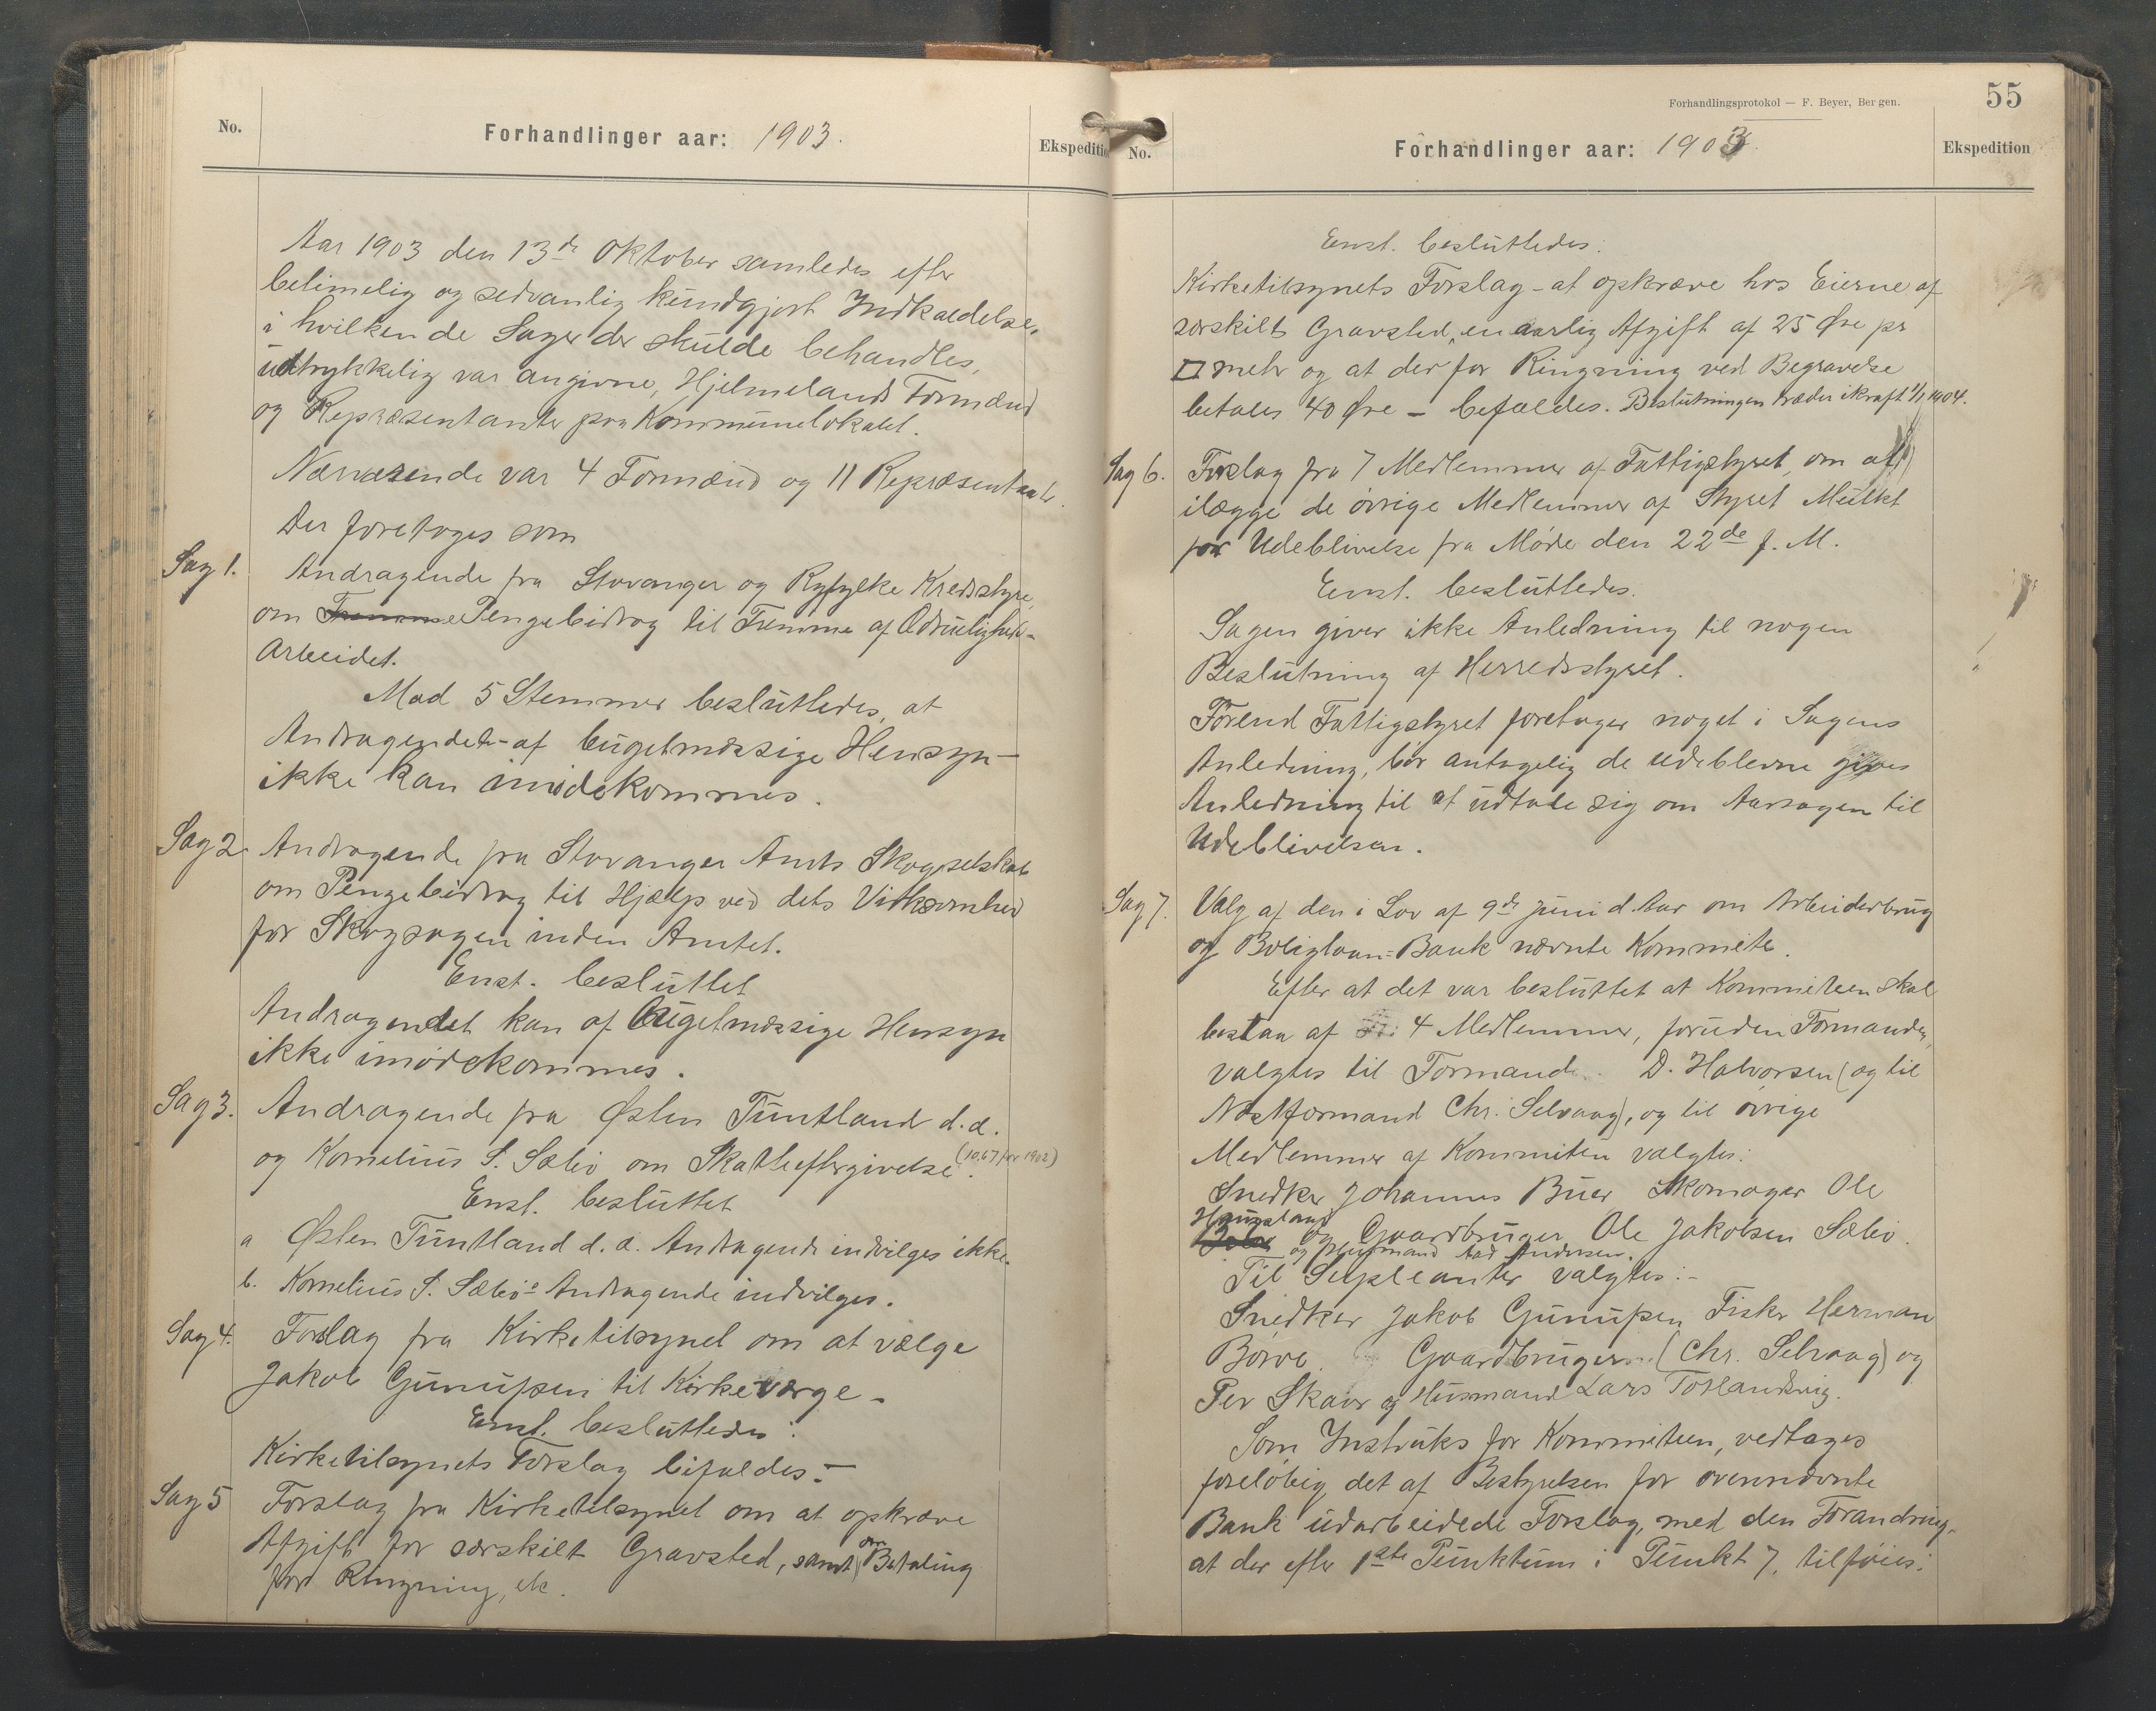 No.
Forhandlinger aar: 1903.
Ekspedition
Aar 1903 den 13de Oktober samledes efter
betimelig og sedvanlig kundgjort Indkaldelse,
i hvilken de Sager der skulde behandles,
udtrykkelig var angivne, Hjelmelands Formænd
og Repræsentanter paa Kommunelokalet.
Nærværende var 4 Formænd og 11 Repræsentanter.
Der foretoges som
Sag 1.
Andragende fra Stavanger og Ryfylke Kredsstyre
om Fremme Pengebidrag til Fremme af Ædrueligheds-
Arbeidet.
Mod 5 Stemmer besluttedes, at
Andragendet - af bugetmæssige Hensyn -
ikke kan imødekommes.
Sag 2.
Andragende fra Stavanger Amts Skogselskab
om Pengebidrag til Hjælp ved dets Virksomhed
for Skogsagen inden Amtet.
Enst. besluttet
Andragendet kan af Bugetmæssige Hensyn
ikke imødekommes.
Sag 3.
Andragende fra Østen Tuntland d.æ.
og Kornelius S. Sæbø om Skatteeftergivelse. (10,67 for 1902)
Enst. besluttet
a Østen Tuntland d. æ. Andragende indvilges ikke.
b. Kornelius S. Sæbøs Andragende indvilges.
Sag 4.
Forslag fra Kirketilsynet om at vælge
Jakob Gunnpsen til Kirkeværge -
Enst. besluttedes:
Kirketilsynets Forslag bifaldes. -
Sag 5
Forslag fra Kirketilsynet om at opkræve
Afgift for særskilt Gravsted, samt om Betaling
for Ringning, etc.
Forhandlingsprotokol — F. Beyer, Bergen.
55
No.
Forhandlinger aar: 1903.
Ekspedition
Enst. besluttedes:
Kirketilsynets Forslag - at opkræve hos Eierne af
særskilt Gravsted, en aarlig Afgift af 25 Øre pr
□ meter og at der for Ringning ved Begravelse
betales 40 Øre - befaldes. Beslutningen træder ikraft 1/1 1904.
Sag 6.
Forslag fra 7 Medlemmer af Fattigstyret, om at
ilægge de øvrige Medlemmer af Styret Mulkt
for Udeblivelse fra Møde den 22de f. M.
Enst. besluttedes.
Sagen giver ikke Anledning til nogen
Beslutning af Herredsstyret.
Førend Fattigstyret foretager noget i Sagens
Anledning, bør antagelig de udeblevne gives
Anledning til at udtale sig om Aarsagen til
Udeblivelsen.
Sag 7.
Valg af den i Lov af 9de Juni d. Aar om Arbeiderbrug
og Boliglaan-Bank nævnte Kommite.
Efter at det var besluttet at Kommiteen skal
bestaa af 4 Medlemmer, foruden Formanden,
valgtes til Formand D. Halvorsen (og til
Næstformand Chr. Selvaag), og til øvrige
Medlemmer af Kommiteen valgtes:
Snedker Johannes Buer, Skomager Ole
Haugsland og Gaardbruger Ole Jakobsen Sæbø.
og Husmand Andersen.
Til Supleanter valgtes: -
Snedker Jakob Gunnpsen Fisker Herman
Børve. Gaardbrugerne (Chr. Selvaag) og
Per Skaar og Husmand Lars Tøtlandsvig.
Som Instruks for Kommiteen, vedtages
foreløbig det af Bestyrelsen for ovennævnte
Bank udarbeidede Forslag, med den Forandring,
at der efter 1ste Punktum i Punkt 7, tilføies: